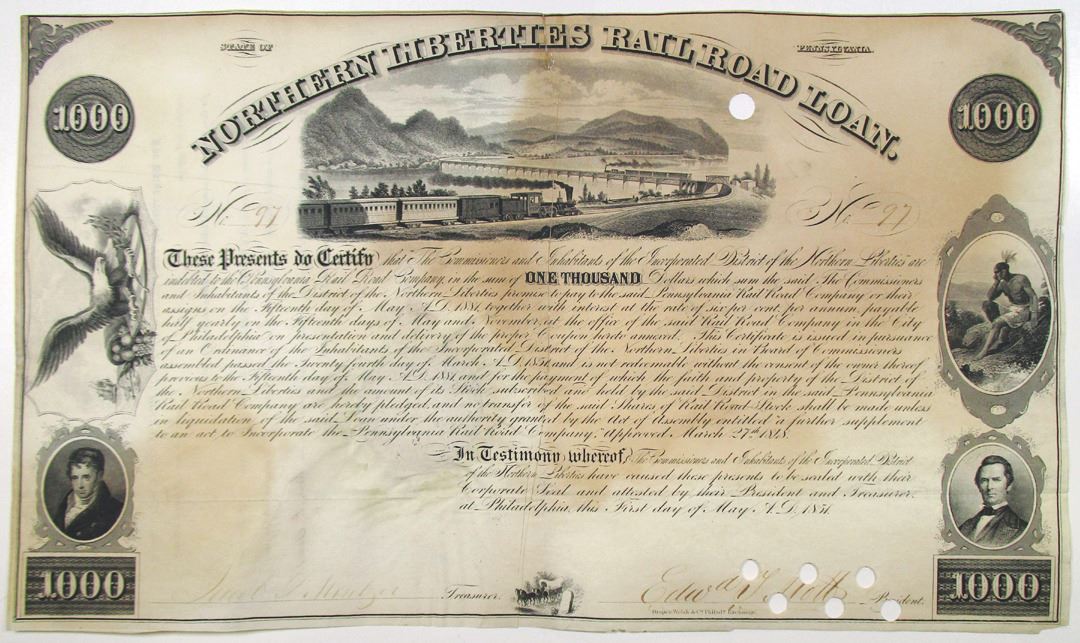 STATE OF
PENNSYLVANIA.
NORTHERN LIBERTIES RAIL ROAD LOAN.
1000
1000
No. 97
No. 97
These Presents do Certify that The Commissioners and Inhabitants of the Incorporated District of the Northern Liberties are
indebted to the Pennsylvania Rail Road Company, in the sum of ONE THOUSAND Dollars which sum the said The Commissioners
and Inhabitants of the District of the Northern Liberties promise to pay to the said Pennsylvania Rail Road Company or their
assigns on the Fifteenth day of May A.D. 1881, together with interest at the rate of six per cent. per annum, payable
half yearly on the Fifteenth days of May and November, at the office of the said Rail Road Company in the City
of Philadelphia on presentation and delivery of the proper Coupon hereto annexed. This Certificate is issued in pursuance
of an Ordinance of the Inhabitants of the Incorporated District of the Northern Liberties in Board of Commissioners
assembled passed the Twenty fourth day of March A.D. 1851, and is not redeemable without the consent of the owner thereof
previous to the Fifteenth day of May A.D. 1881, and for the payment of which the faith and property of the District of
the Northern Liberties and the amount of its Stock subscribed and held by the said District in the said Pennsylvania
Rail Road Company are hereby pledged, and no transfer of the said Shares of Rail Road Stock shall be made unless
in liquidation of the said Loan under the authority granted by the Act of Assembly entitled "a further supplement
to an act to Incorporate the Pennsylvania Rail Road Company," Approved March 27th 1848.
In Testimony whereof, The Commissioners and Inhabitants of the Incorporated District
of the Northern Liberties have caused these presents to be sealed with their
Corporate Seal and attested by their President and Treasurer,
at Philadelphia, this First day of May A.D. 1851.
1000
Treasurer.
Edwd T. Mott
President.
1000
Draper, Welsh & Co. Philada. Exchange.